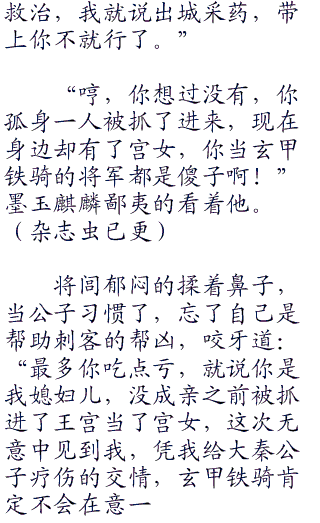 救治，我就说出城采药，带
上你不就行了。”
“哼，你想过没有，你
孤身一人被抓了进来，现在
身边却有了宫女，你当玄甲
铁骑的将军都是傻子啊！”
墨玉麒麟鄙夷的看着他。
（杂志虫已更）
将闾郁闷的揉着鼻子，
当公子习惯了，忘了自己是
帮助刺客的帮凶，咬牙道：
“最多你吃点亏，就说你是
我媳妇儿，没成亲之前被抓
进了王宫当了宫女，这次无
意中见到我，凭我给大秦公
子疗伤的交情，玄甲铁骑肯
定不会在意一